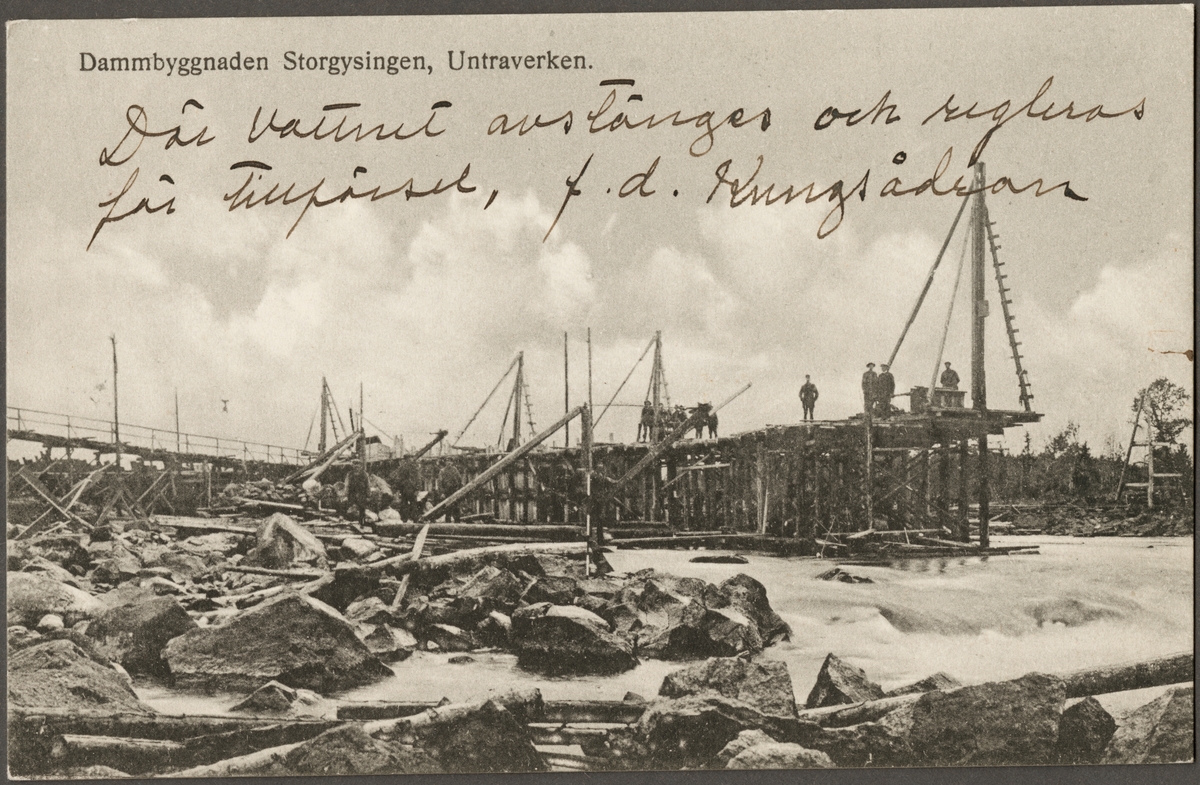 Dammbyggnaden Storgysingen, Untraverken.
Där vattnet avstänges och regleras
för tillförsel, f.d. Kungsådran